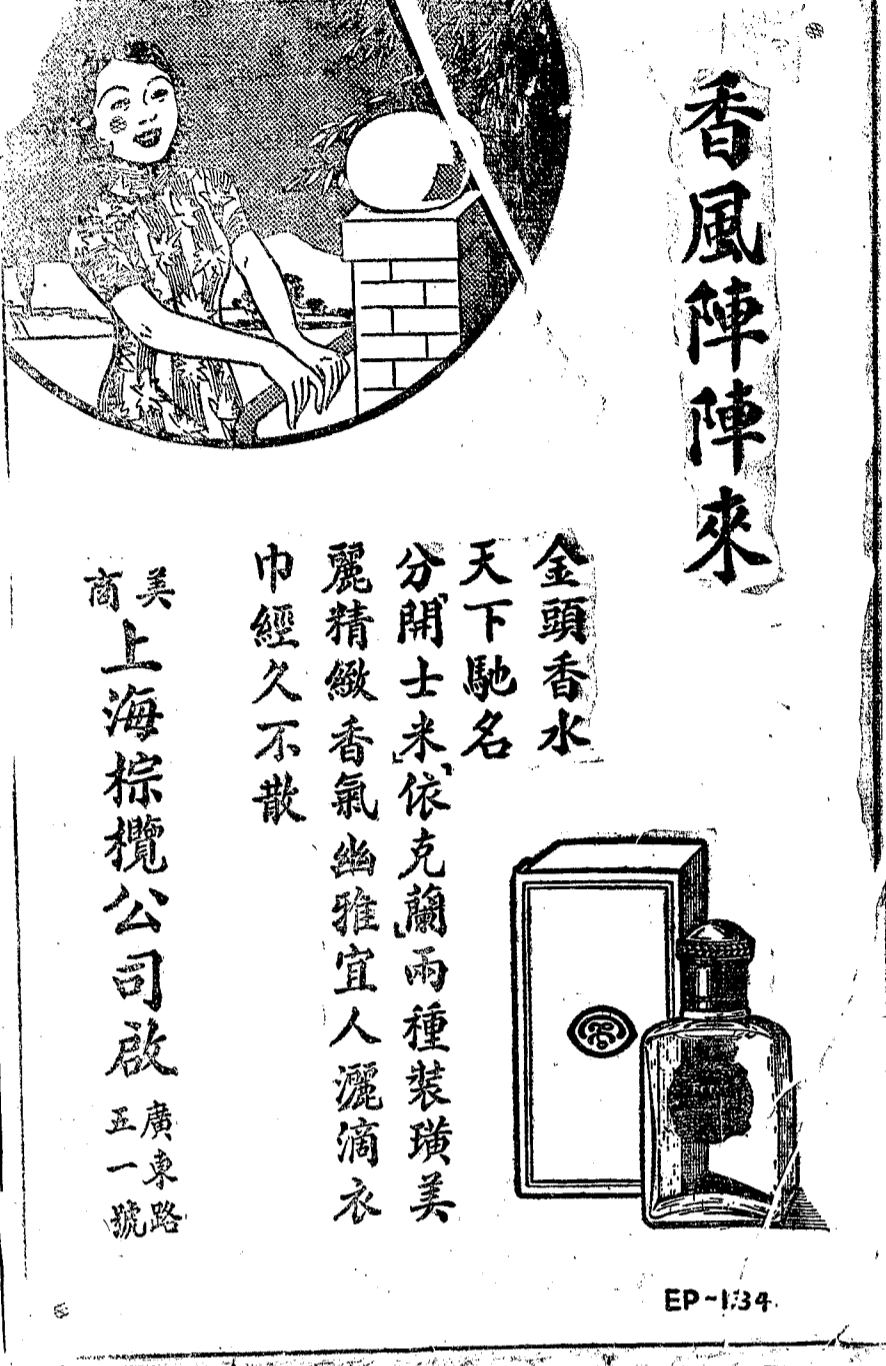 香風陣陣來
金頭香水
天下馳名
分「開士米」「依克蘭」兩種裝璜美
麗精緻香氣幽雅宜人灑滴衣
巾經久不散
美商
上海棕欖公司啟
廣東路
五一號
EP-134